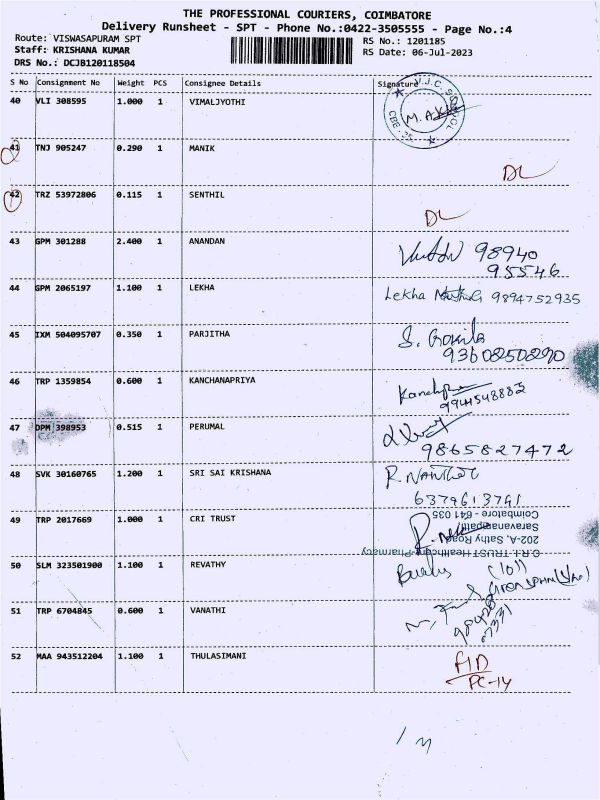 THE PROFESSIONAL COURIERS, COIMBATORE
Delivery Runsheet - SPT - Phone No.:0422-3505555 - Page No.:4
Route: VISWASAPURAM SPT RS No.: 1201185
Staff: KRISHANA KUMAR RS Date: 06-Jul-2023
DRS No.: DCJB120118504
S No Consignment No Weight PCS Consignee Details Signature
40 VLI 308595 1.000 1 VIMALJYOTHI
41 TNJ 905247 0.290 1 MANIK DL
42 TRZ 53972806 0.115 1 SENTHIL DL
43 GPM 301288 2.400 1 ANANDAN 98940
95546
44 GPM 2065197 1.100 1 LEKHA Lekha 9894752935
45 IXM 504095707 0.350 1 PARJITHA S. Gokila
9360850890
46 TRP 1359854 0.600 1 KANCHANAPRIYA
9944548882
47 DPM 398953 0.515 1 PERUMAL
9865827472
48 SVK 30160765 1.200 1 SRI SAI KRISHANA R.
6379613741
49 TRP 2017669 1.000 1 CRI TRUST
C.R.I. TRUST Healthcare Pharmacy
202-A, Sathy Road
Saravanampatti
Coimbatore - 641 035
50 SLM 323501900 1.100 1 REVATHY
51 TRP 6704845 0.600 1 VANATHI
52 MAA 943512204 1.100 1 THULASIMANI
PC-14